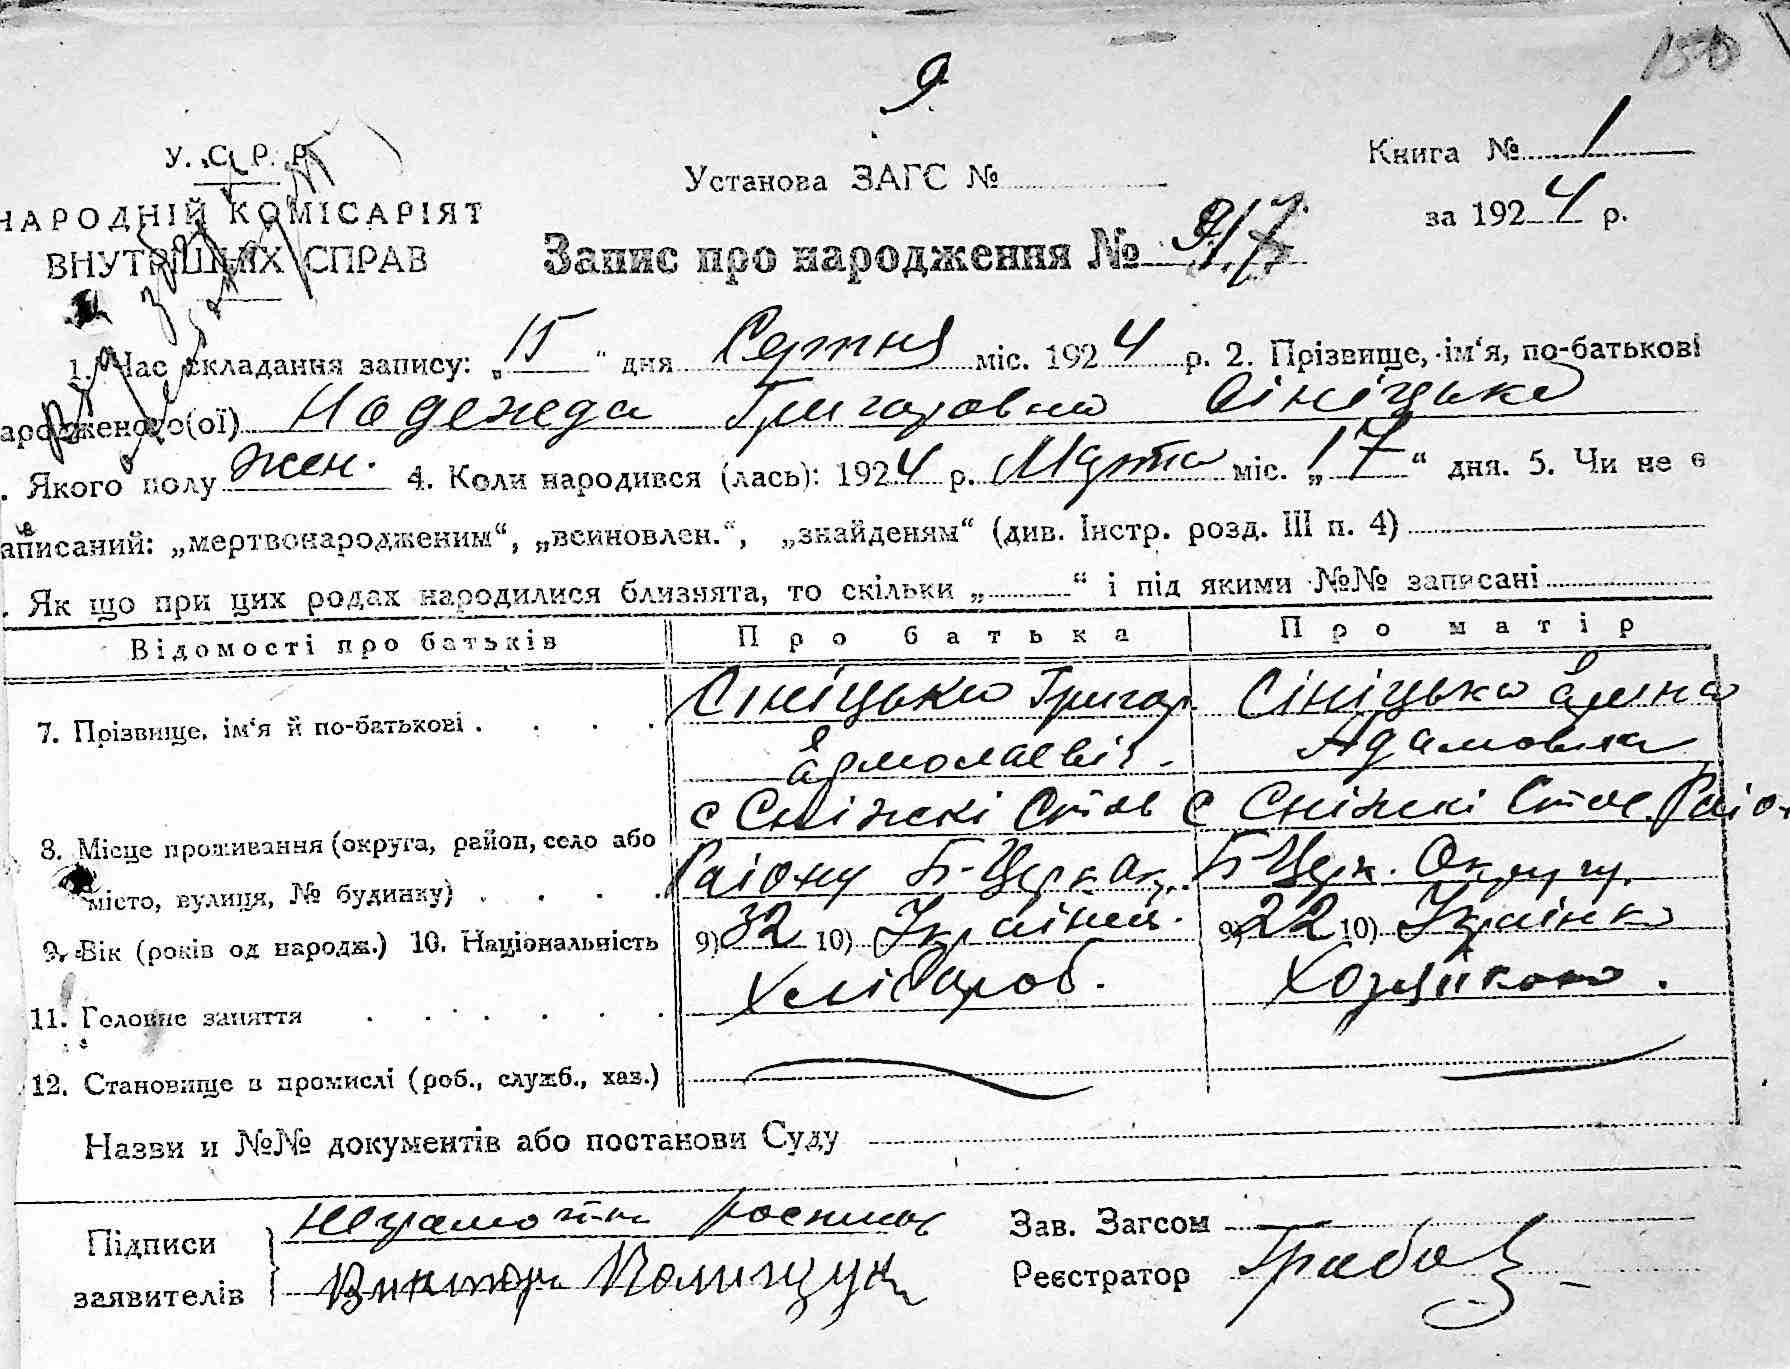 150
9.
У. С. Р. Р.
НАРОДНІЙ КОМІСАРІЯТ
ВНУТРІШНІХ СПРАВ
Установа ЗАГС №
Книга № 1
за 1924 р.
Запис про народження №
1. Час складання запису: „15“ дня Серпня міс. 1924 р. 2. Прізвище, ім‘я, по-батькові
ародженого(ої) Надежда Григоровна Сініцька
. Якого полу жен. 4. Коли народився (лась): 1924 р. Марта міс. „17“ дня. 5. Чи не є
аписаний: „мертвонародженим“, „всиновлен.“, „знайденям“ (див. Інстр. розд. III п. 4)
. Як що при цих родах народилися близнята, то скільки „ “ і під якими №№ записані
Відомості про батьків Про батька Про матір
7. Прізвище, ім‘я й по-батькові . . . . Сініцько Григор. Сініцька Єлена
Єрмолаєвіч. Адамовна
8. Місце проживання (округа, район, село або с Сніжкі Став с Сніжкі Став. Раіо
місто, вулиця, № будинку) . . . . Раіону Б-Церк Ок. Б-Церк. Округу.
9. Вік (років од народж.) 10. Національність 9) 32 10) Українец. 9) 22 10) Українка
11. Головне заняття . . . . . . . Хлібороб. Хозяйкою.
12. Становище в промислі (роб., служб., хаз.)
Назви и №№ документів або постанови Суду
Підписи неграмотна росписас Зав. Загсом
заявителів Виктор Полищук Реєстратор